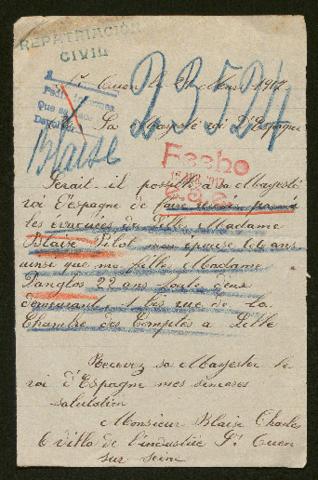 REPATRIACIÓN
CIVIL
St Ouen le 21 Mars 1917
23524
Sa Majesté roi D'Espagne
Blaise
Fecho
Serait-il possible à sa Mayesté
roi d'Espagne de faire
les évacués de Lille Madame
Blaise Pilot mon épouse ans
ainsi que ma fille Madame
Danglos 22 ans toute deux
demeurant 1 bis rue de la
Chambre des Comptes a Lille
Recevez sa Mayester le
roi d'Espagne mes sincères
salutation
Monsieur Blaise Charles
6 villa de l'industrie St Ouen
sur seine